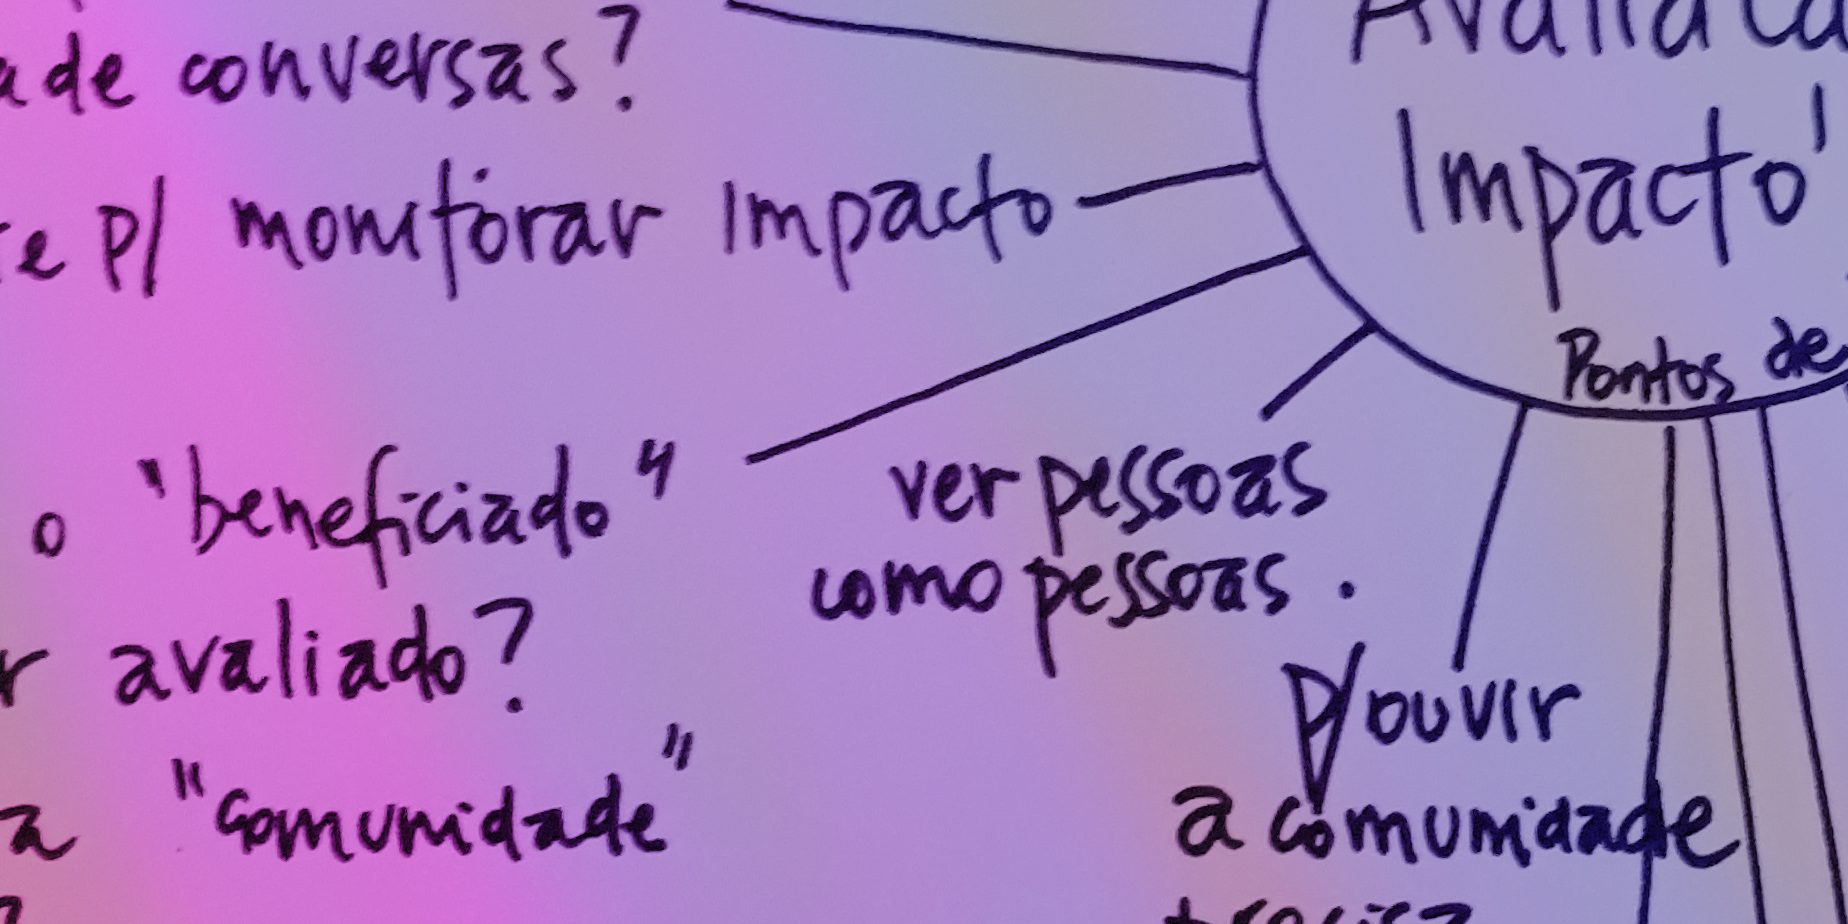 ade conversas?
e p/ monitorar Impacto
o "beneficiado"
r avaliado?
a "comunidade"
Impacto
Pontos de
ver pessoas
como pessoas.
p/ ouvir
a comunidade